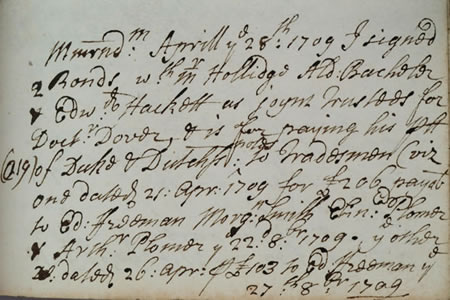 Memrnd:m Aprill ye 28:th 1709 I signed
2 Bonds wth mr Hollidge Ald: Bacheler
& Edw:d Hackett as joynt Trustees for
Doct:r Dover, & is for paying his pt
(219) of Duke & Dutchss: to Tradesmen (viz
one dated 21: Apr: 1709 for £206 payable
to Ed: Freeman Morg:n Smith Edn: Plomer
& Arth:r Plomer ye 22:d: 8:br 1709. ye other
is: dated 26: Apr: £103 to Ed Freeman ye
27:th 8:br 1709